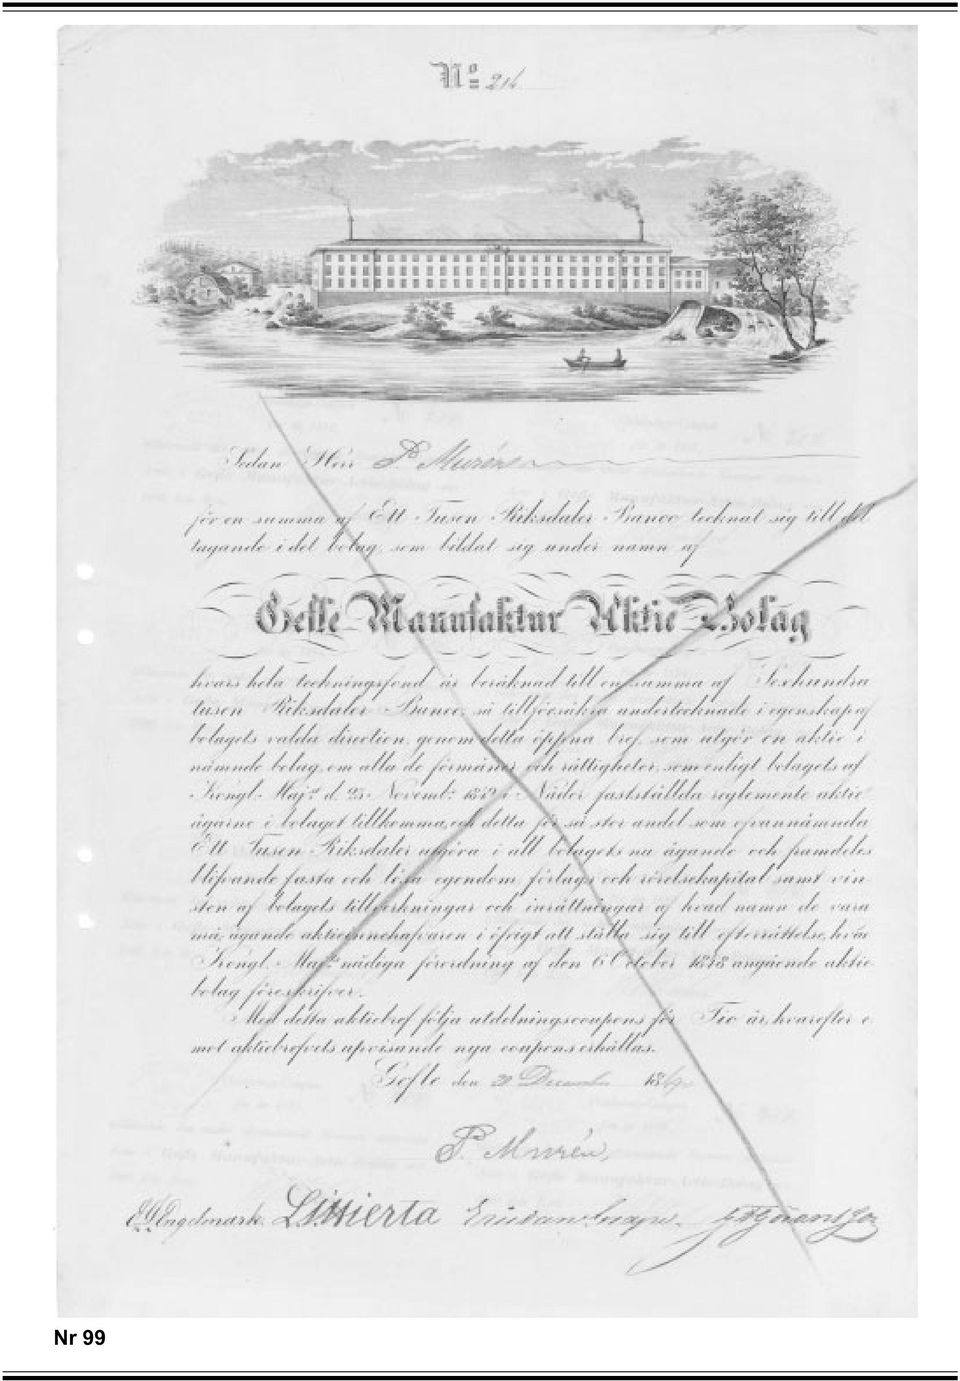 No 216
Sedan Herr P. Murén
för en summa af Ett Tusen Riksdaler Banco tecknat sig till del
tagande i det bolag, som bildat sig under namn af
Gefle Manufaktur Aktie Bolag
hvars hela teckningsfond är beräknad till en summa af Sexhundra
tusen Riksdaler Banco, så tillförsäkra undertecknade i egenskap af
bolagets valda direction, genom detta öppna bref, som utgör en aktie i
nämnde bolag, om alla de förmåner och rättigheter, som enligt bolagets af
Kongl. Maj:t d. 23 Novemb: 1849 i Nåder fastställda reglemente aktie
ägarne i bolaget tillkomma, och detta för så stor andel som ofvannämnda
Ett Tusen Riksdaler utgöra i all bolagets nu ägande och framdeles
blifvande fasta och lösa egendom, förlags och rörelsekapital samt vin
sten af bolagets tillverkningar och inrättningar af hvad namn de vara
må, ägande aktieinnehafvaren i öfrigt att ställa sig till efterrättelse, hvad
Kongl. Maj:ts nådiga förordning af den 6 October 1848 angående aktie
bolag föreskrifver.
Med detta aktiebref följa utdelningscoupons för Tio år, hvarefter e
mot aktiebrefvets uppvisande nya coupons erhållas.
Gefle den 20 December 18
P. Murén
Engelmark.
Nr 99